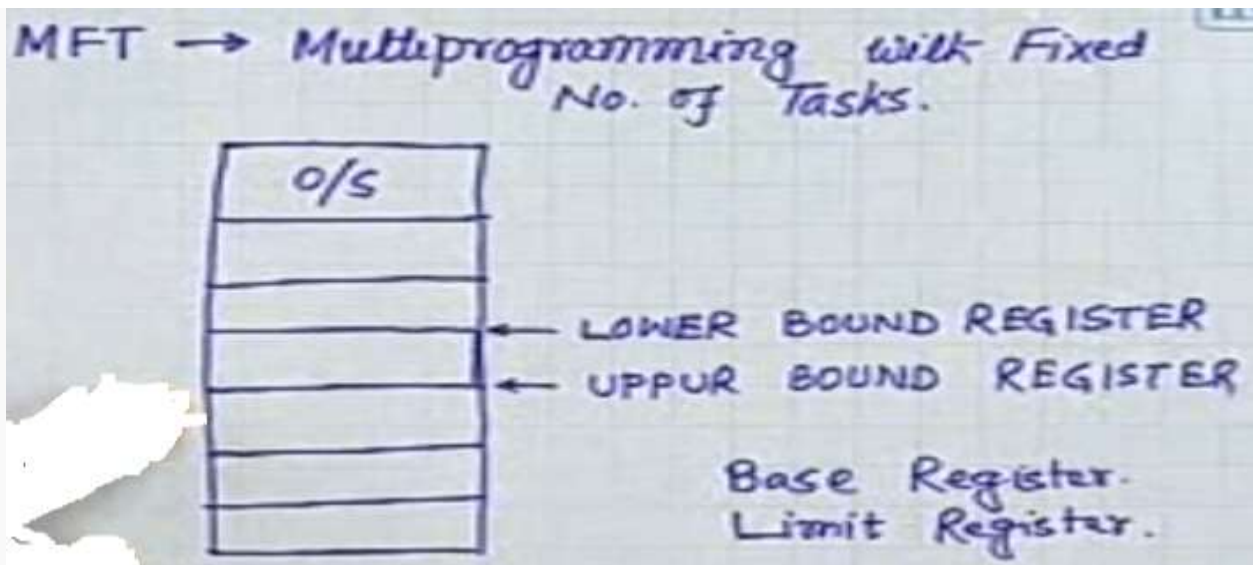 MFT → Multiprogramming with Fixed
No. of Tasks.
O/S
LOWER BOUND REGISTER
UPPUR BOUND REGISTER
Base Register.
Limit Register.